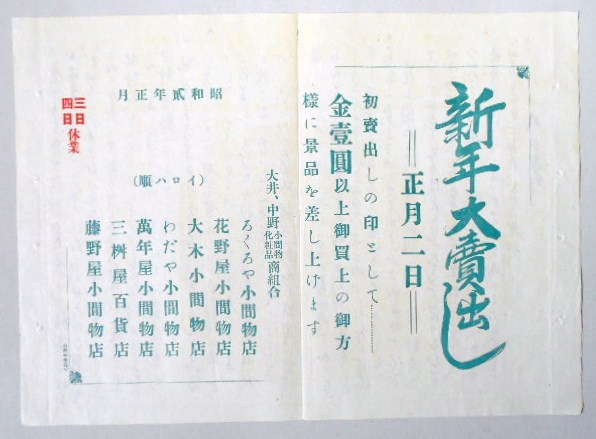 新年大賣出し
正月二日
初賣出しの印として
金壹圓以上御買上の御方
様に景品を差し上げます
大井、中野小間物化粧品商組合
ろくろや小間物店
花野屋小間物店
大木小間物店
わだや小間物店
萬年屋小間物店
三桝屋百貨店
藤野屋小間物店
(イロハ順)
昭和貳年正月
三日
四日
休業